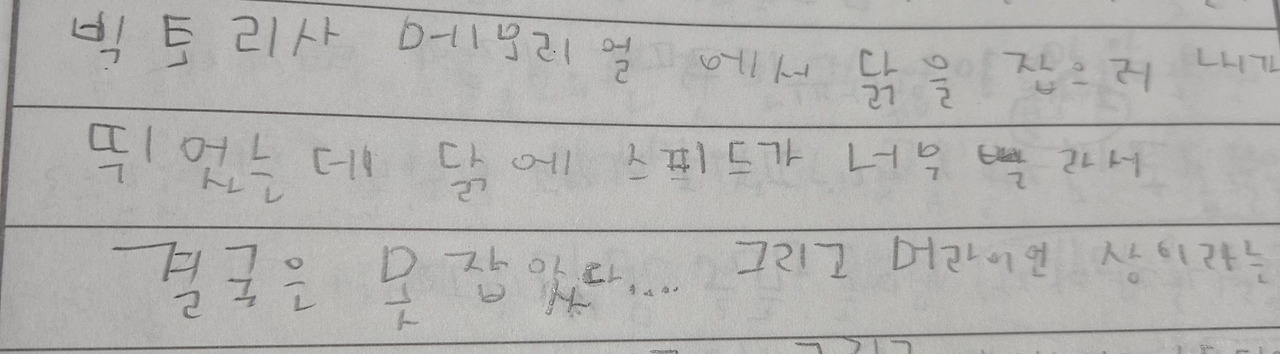 빅토리사 메모리얼 에서 닭을 잡으러 내가
뛰었는데 닭에 스피드가 너무 빨라서
결국은 못 잡았다.... 그리고 머라이언 상이라는